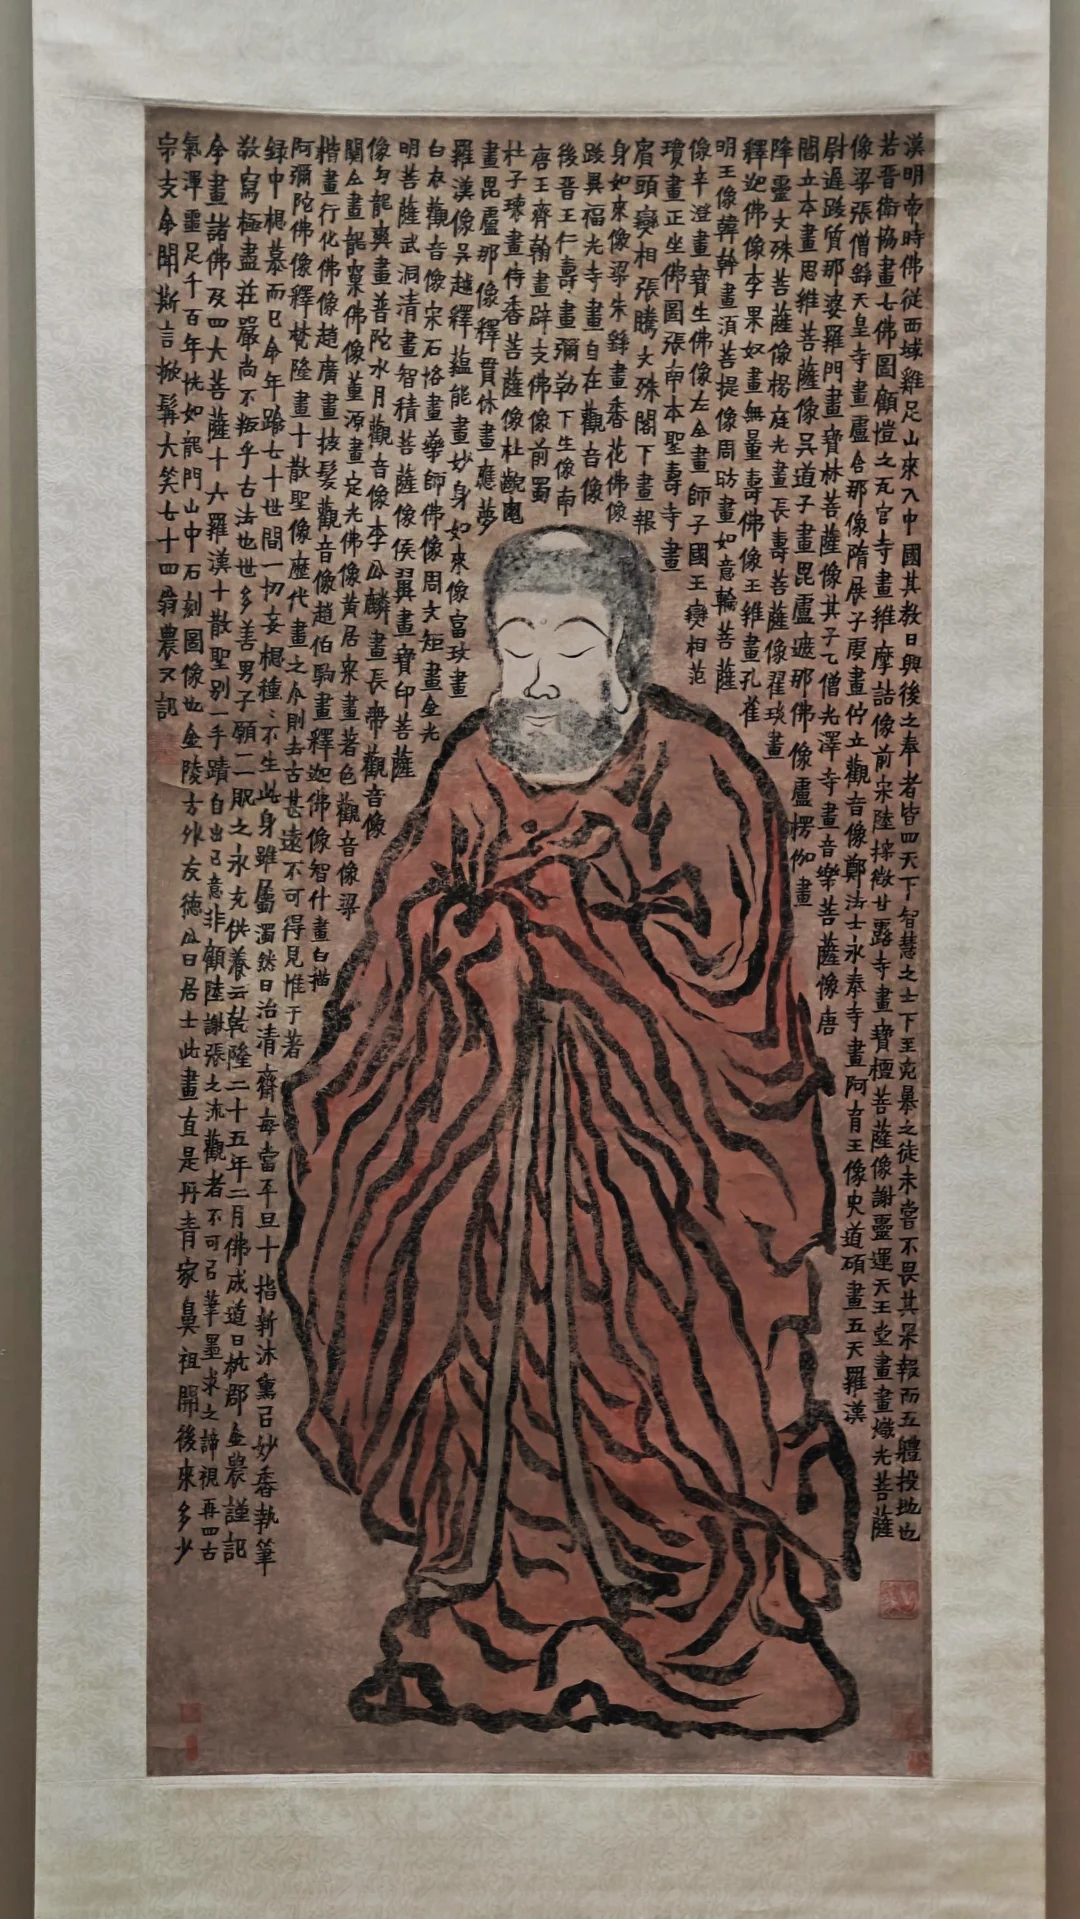 漢明帝時佛従西域雞足山來入中國其教日興後之奉者皆四天下智慧之士下至兇暴之徒未嘗不畏其果報而五體投地也
若晉衛協畫七佛圖顧愷之瓦官寺畫維摩詰像前宋陸探微甘露寺畫寶檀菩薩像謝靈運天王堂畫畫熾光菩薩
像梁張僧繇天皇寺畫盧舍那像隋展子虔畫佇立觀音像鄭法士永奉寺畫阿育王像史道碩畫五天羅漢
尉遲跋質那婆羅門畫寶林菩薩像其子乙僧光澤寺畫音樂菩薩像唐
閻立本畫思維菩薩像吳道子畫毘盧遮那佛像盧楞伽畫
降靈文殊菩薩像楊庭光畫長壽菩薩像翟琰畫
釋迦佛像李果奴畫無量壽佛像王維畫孔雀
明王像韓幹畫須菩提像周昉畫如意輪菩薩
像辛澄畫寶生佛像左全畫師子國王變相范
瓊畫正坐佛圖張南本聖壽寺畫
賓頭變相張騰文殊閣下畫報
身如來像梁朱繇畫香花佛像
跋異福光寺畫自在觀音像
後晉王仁壽畫彌勒下生像南
唐王齊翰畫辟支佛像前蜀
杜子瓌畫侍香菩薩像杜齯龜
畫毘盧那像釋貫休畫應夢
羅漢像吳越釋蘊能畫妙身如來像富玫畫
白衣觀音像宋石恪畫藥師佛像周文矩畫金光
明菩薩武洞清畫智積菩薩像侯翼畫寶印菩薩
像勾龍爽畫普陀水月觀音像李公麟畫長帶觀音像
關仝畫龍窠佛像董源畫定光佛像黃居寀畫著色觀音像梁
楷畫行化佛像趙廣畫披髮觀音像趙伯駒畫釋迦佛像智什畫白描
阿彌陀佛像釋梵隆畫十散聖像歷代畫之本則去古甚遠不可得見惟于著
録中想慕而已今年踰七十世間一切妄想種〻不生此身雖屬濁然日治清齋每當平旦十指新沐熏㠯妙香執筆
敬寫極盡莊嚴尚不叛乎古法也世多善男子願一一貺之永充供養云乾隆二十五年二月佛成道日杭郡金農謹記
余畫諸佛及四大菩薩十六羅漢十散聖別一手蹟自出己意非顧陸謝張之流觀者不可㠯筆墨求之諦視再四古
氣渾噩足千百年恍如龍門山中石刻圖像也金陵方外友德公曰居士此畫直是丹青家鼻祖開後來多少
宗支余聞斯言掀髯大笑七十四翁農又記